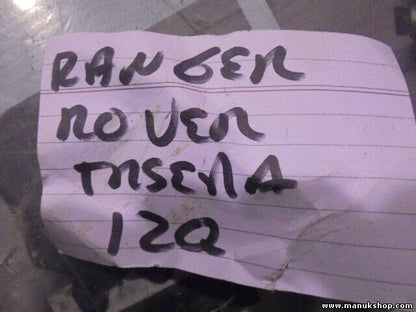 RANGER
ROVER
TRSERA
IZQ
www.manukshop.com